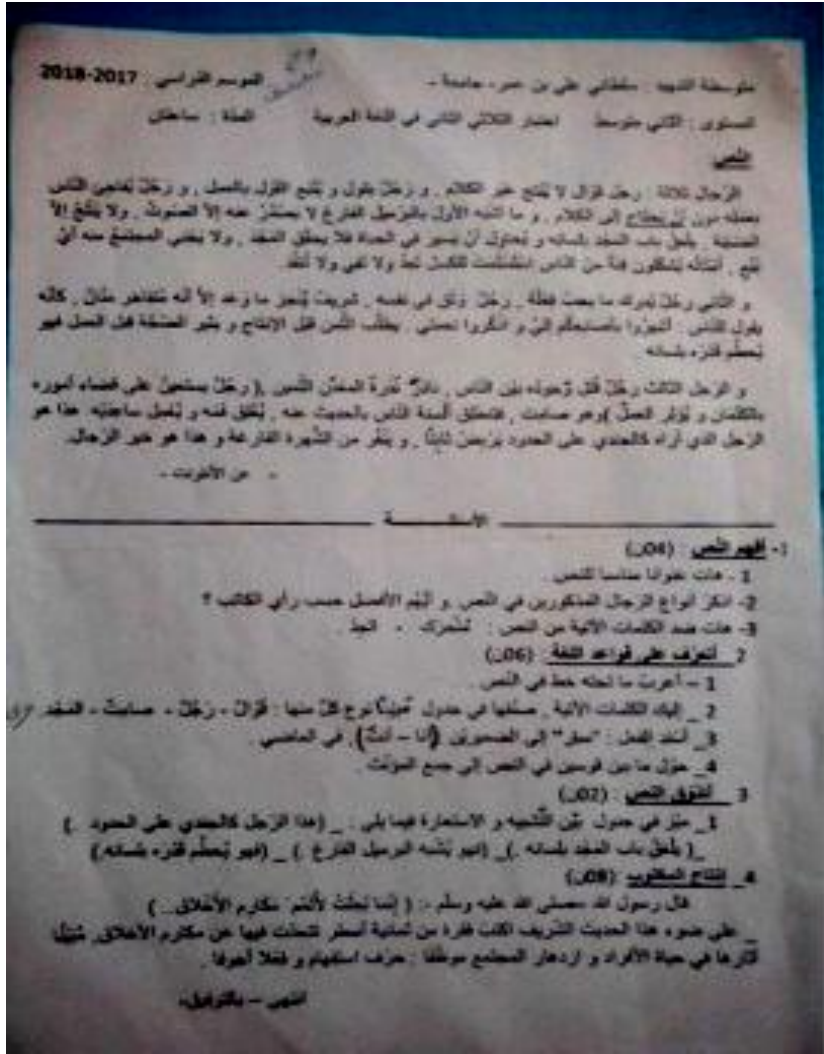 متوسطة الشهيد : سلطاني علي بن عمر - جامعة - الموسم الدراسي : 2017-2018
المستوى : الثاني متوسط اختبار الثلاثي الثاني في اللغة العربية المدة : ساعتان
النص
الرجال ثلاثة : رجل قوّال لا يُنتج غير الكلام . و رجل يقول و يُتبع القول بالعمل , و رجل يُفاجئ الناس
بعمله دون أن يحتاج إلى الكلام . و ما أشبه الأول بالبرميل الفارغ لا يصدر عنه إلا الصوت , ولا
باب المجد بلسانه و يُحاول أن يسير في الحياة فلا يحقق المجد , ولا يجني المجتمع منه أيّ
نفع . أمثاله يُشكلون فئة من الناس
و الثاني رجل يُدرك ما يجب فعله . رجل وثق في نفسه . يُنجز ما وعد إلا أنه مُتفاخر
يقول للناس : أشيروا بأصابعكم إليّ و اذكروا . يطلب الثمن قبل الإنتاج و يثير الضجّة قبل العمل فهو
يُحطّم قدره بلسانه
و الرجل الثالث رجل قلّ وجوده بين الناس , نادر نُدرة المعدن الثمين ,( رجل يستعين على قضاء أموره
بالكتمان و يُؤثر العمل )وهو صامت , فتنطلق ألسنة الناس بالحديث عنه . يُغلق فمه و يُعمل ساعديه هذا هو
الرجل الذي أراه كالجندي على الحدود يربض ثابتًا , و ينفر من الشهرة الفارغة و هذا هو خير الرجال.
- عن الأنترنت -
الأسئلة
1- أفهم النص : (04ن)
1 - هات عنوانا مناسبا للنص .
2- اذكر أنواع الرجال المذكورين في النص و أيهم الأفضل حسب رأي الكاتب ؟
3- هات ضد الكلمات الآتية من النص : - الجد .
2_ أتعرف على قواعد اللغة : (06ن)
1 – أعرب ما تحته خط في النص .
2 _ إليك الكلمات الآتية , صنفها في جدول مُبيّنا نوع كلّ منها : قوّال - رجُل - صامت - المجد
3_ أسند الفعل : "سار" إلى الضميرين (أنا – أنتَ), في الماضي .
4_ حوّل ما بين قوسين في النص إلى جمع المؤنث .
3 _ أتذوق النص : (02ن)
1_ ميّز في جدول بين التشبيه و الاستعارة فيما يلي : _ (هذا الرجل كالجندي على الحدود .)
باب المجد بلسانه .)_ (فهو يُشبه البرميل الفارغ .) _ (فهو يُحطّم قدره بلسانه.)
4_ إنتاج المكتوب :(08ن)
قال رسول الله -صلى الله عليه وسلم -: ( إنما بُعثتُ لأتمم مكارم الأخلاق . )
_ على ضوء هذا الحديث الشريف اكتب فقرة من ثمانية أسطر تتحدث فيها عن مكارم الأخلاق,
آثارها في حياة الأفراد و ازدهار المجتمع موظفا : حرف استفهام و فعلا أجوفا .
انتهى – بالتوفيق-